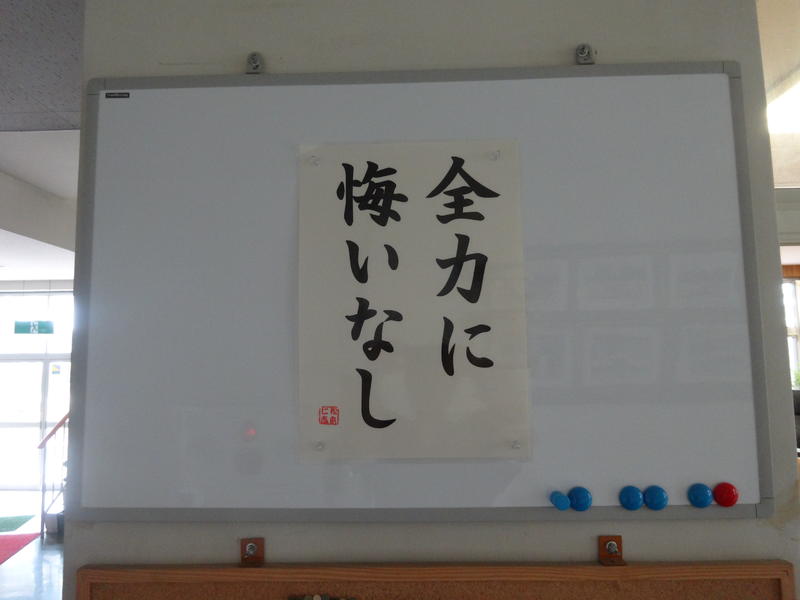 全力に
悔いなし